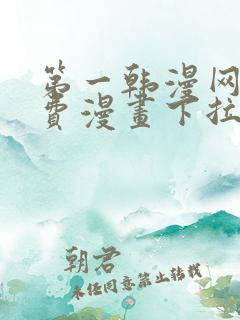 第一韩漫网
费漫画下拉
朝君
未经同意禁止转载